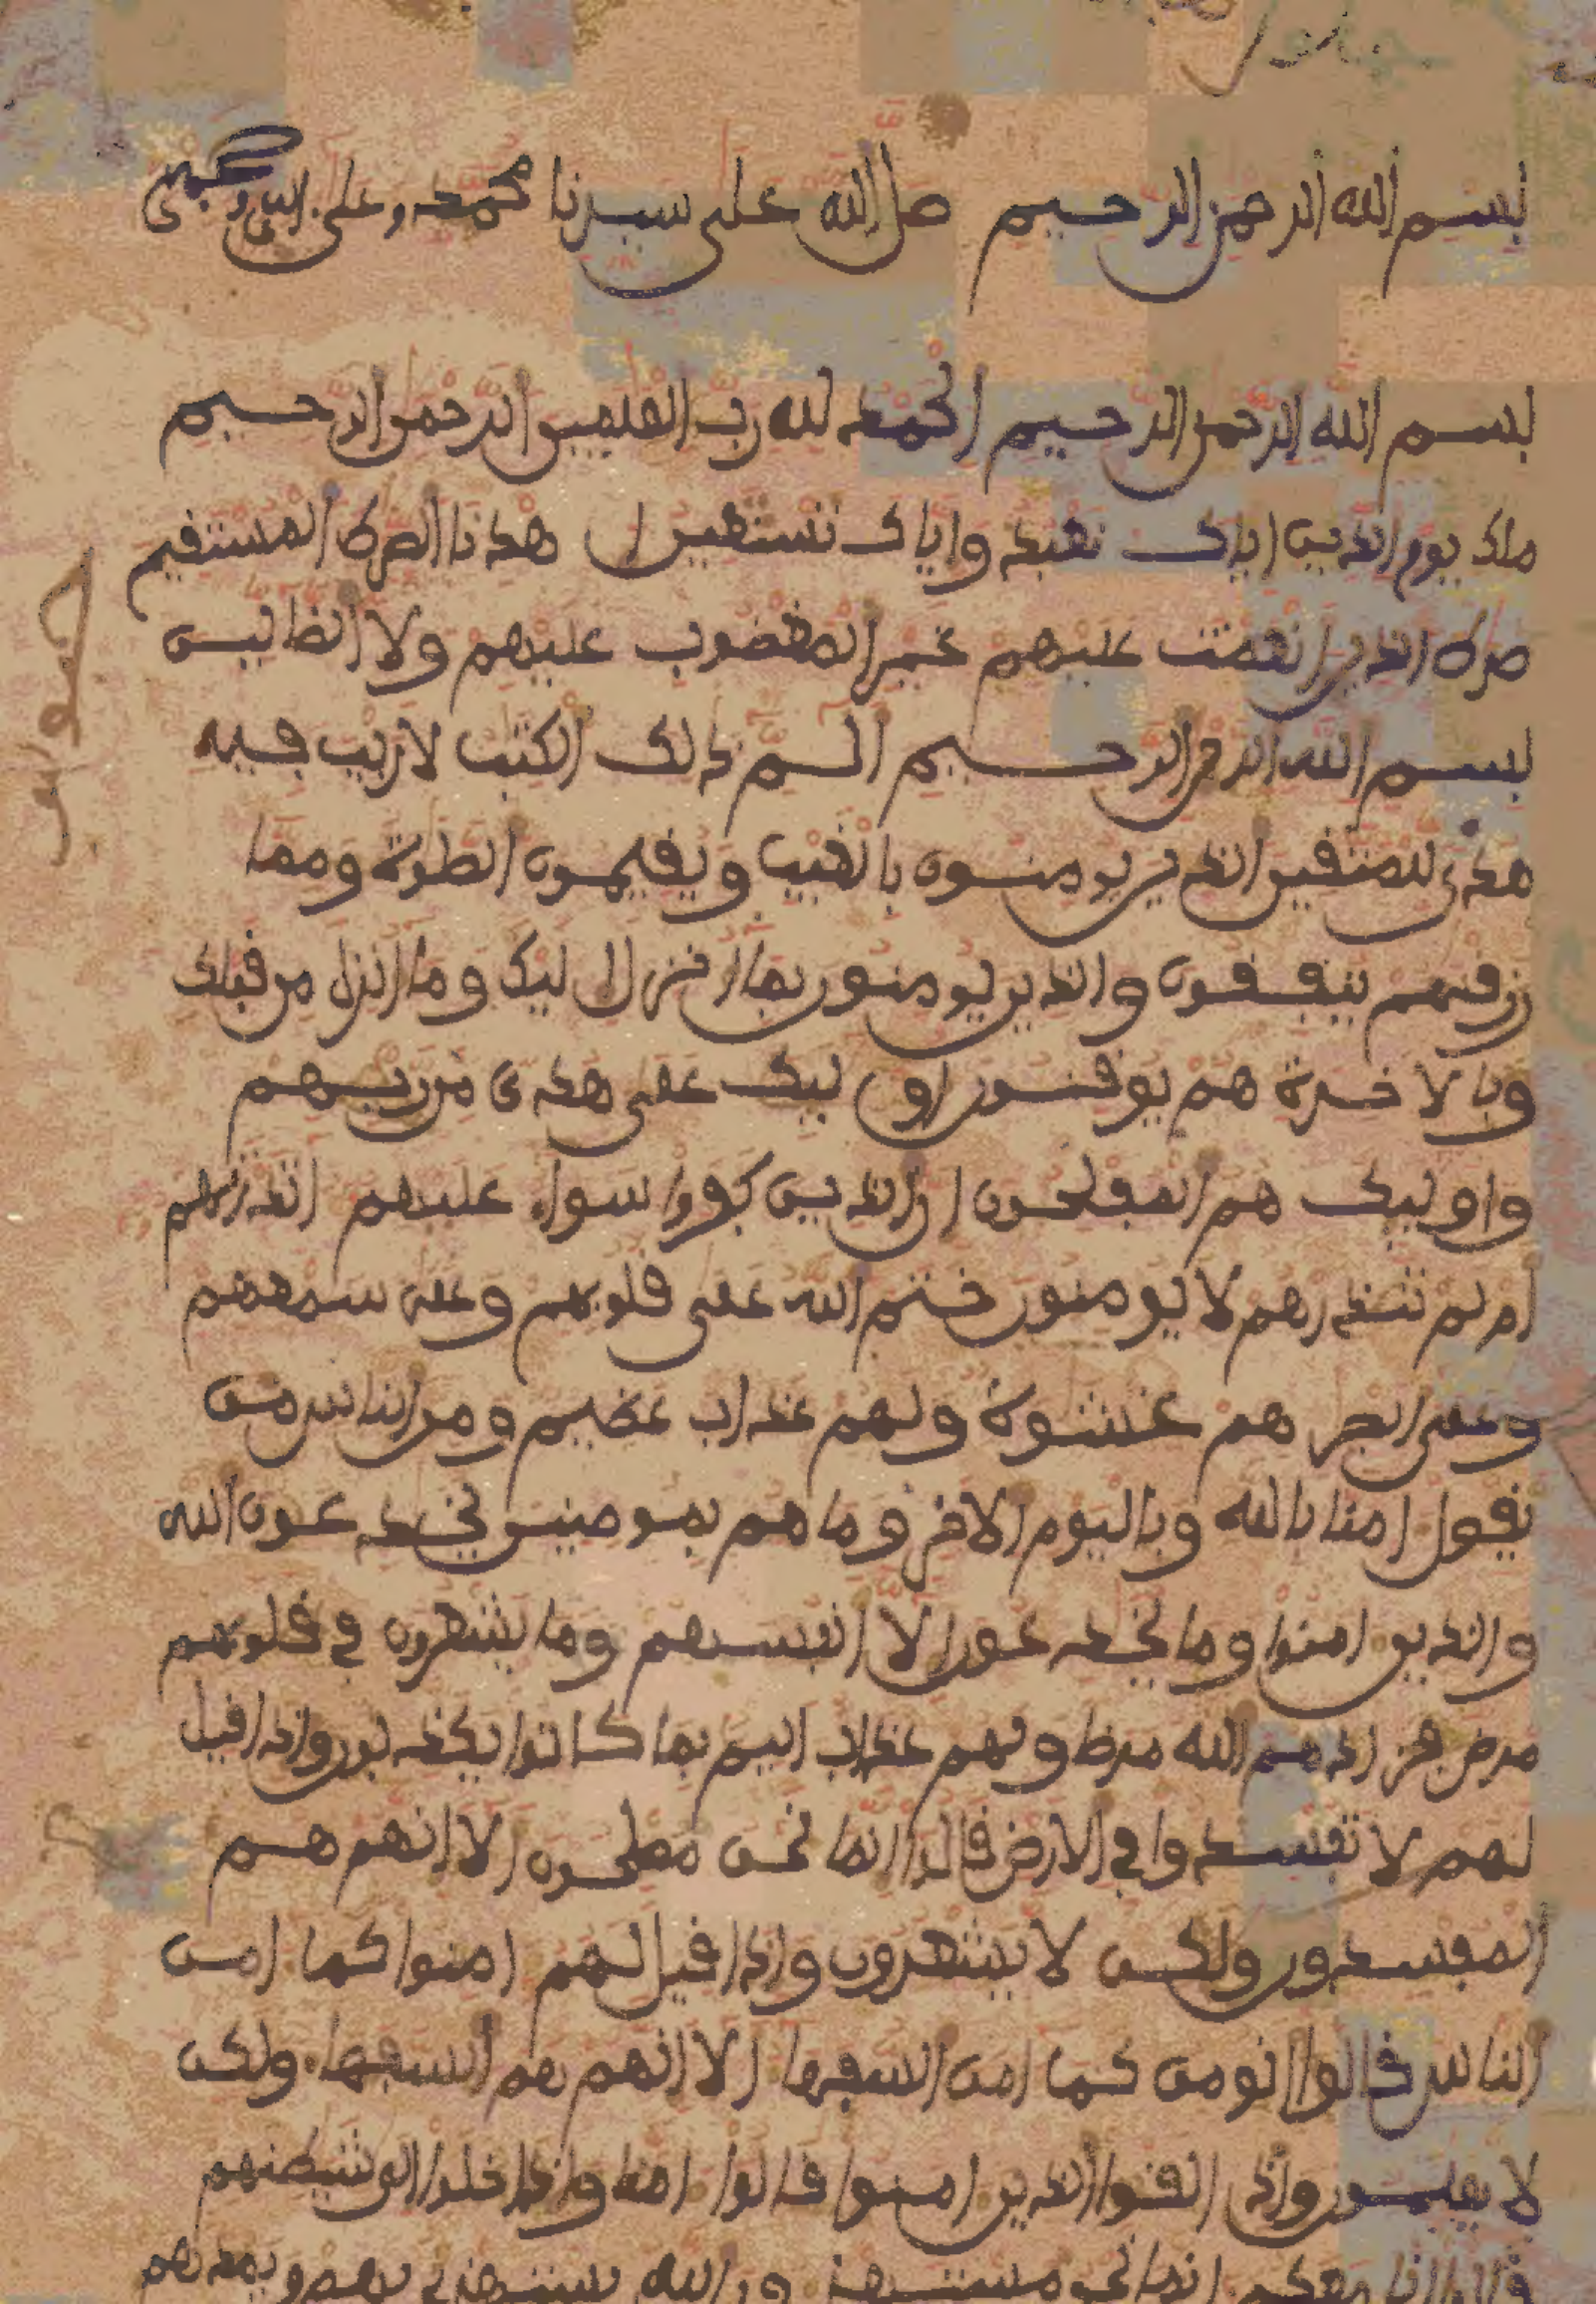 بسم الله الرحمن الرحيم صل الله على سيدنا محمد وعلى
بسم الله الرحمن الرحيم الحمد لله رب العلمين الرحمن الرحيم
ملك يوم الدين اياك نعبد واياك نستعين ا هدنا الصرط المستقيم
صرط الذين انعمت عليهم غير المغضوب عليهم ولا الظالين
بسم الله الرحمن الرحيم الم ذالك الكتب لا ريب فيه
هدى للمتقين الذين يومنون بالغيب ويقيمون الصلوة ومما
رزقنهم ينفقون والذين يومنون بما انزل ا ليك وما انزل من قبلك
وبالاخرة هم يوقنون او ليك على هدى من ربهم
واوليك هم المفلحون ان الذين كفروا سواء عليهم انذرتهم
ام لم تنذرهم لا يومنون ختم الله على قلوبهم وعلى سمعهم
وعلى ابصرهم غشوة ولهم عذاب عظيم ومن الناس من
يقول امنا بالله وباليوم الاخر وما هم بمومنين يخدعون الله
والذين امنوا وما يخدعون الا انفسهم وما يشعرون في قلوبهم
مرض فزادهم الله مرظا ولهم عذاب اليم بما كانوا يكذبون واذا قيل
لهم لا تفسدوا في الارض قالوا انما نحن مصلحون الا انهم هم
المفسدون ولكن لا يشعرون واذا قيل لهم امنوا كما امن
الناس قالوا انومن كما امن السفها الا انهم هم السفهاء ولكن
لا يعلمون واذا القوا الذين امنوا قالوا امنا واذا خلوا الى شيطينهم
قالوا انا معكم انما نحن مستهزون الله يستهزئ بهم ويمدهم